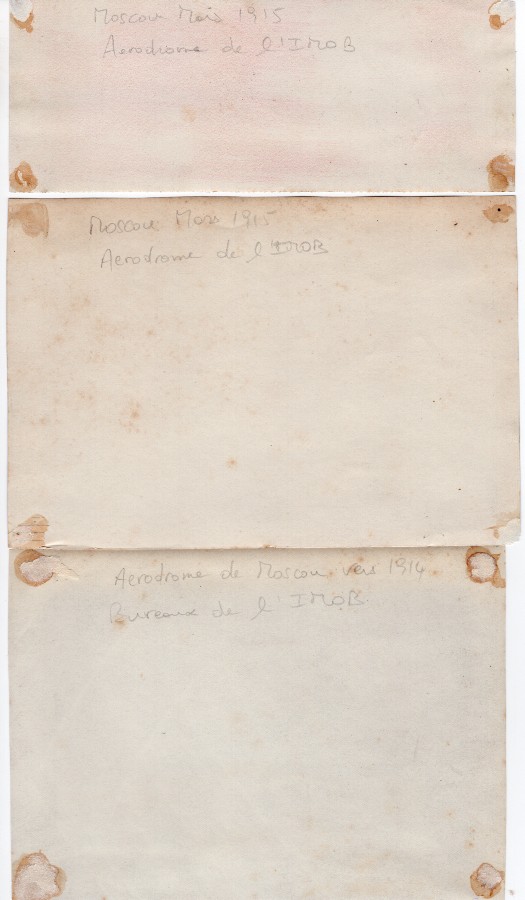 Moscou Mars 1915
Aerodrome de l'IMOB
Moscou Mars 1915
Aerodrome de l'IMOB
Aerodrome de Moscou vers 1914
Bureaux de l'IMOB